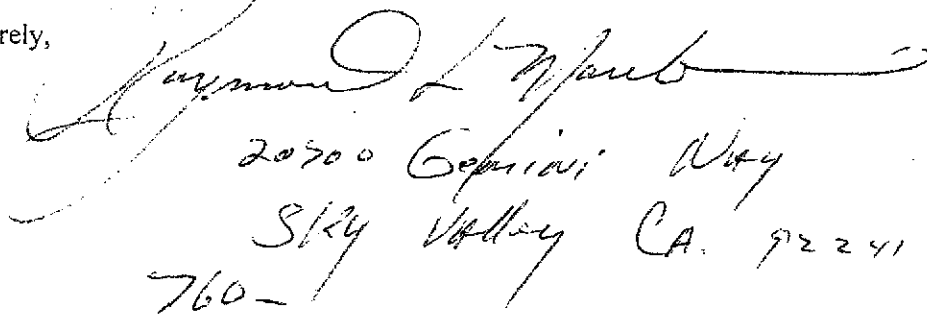 rely,
Raymond L
20700 Gemini Way
Sky Valley CA. 92241
760-